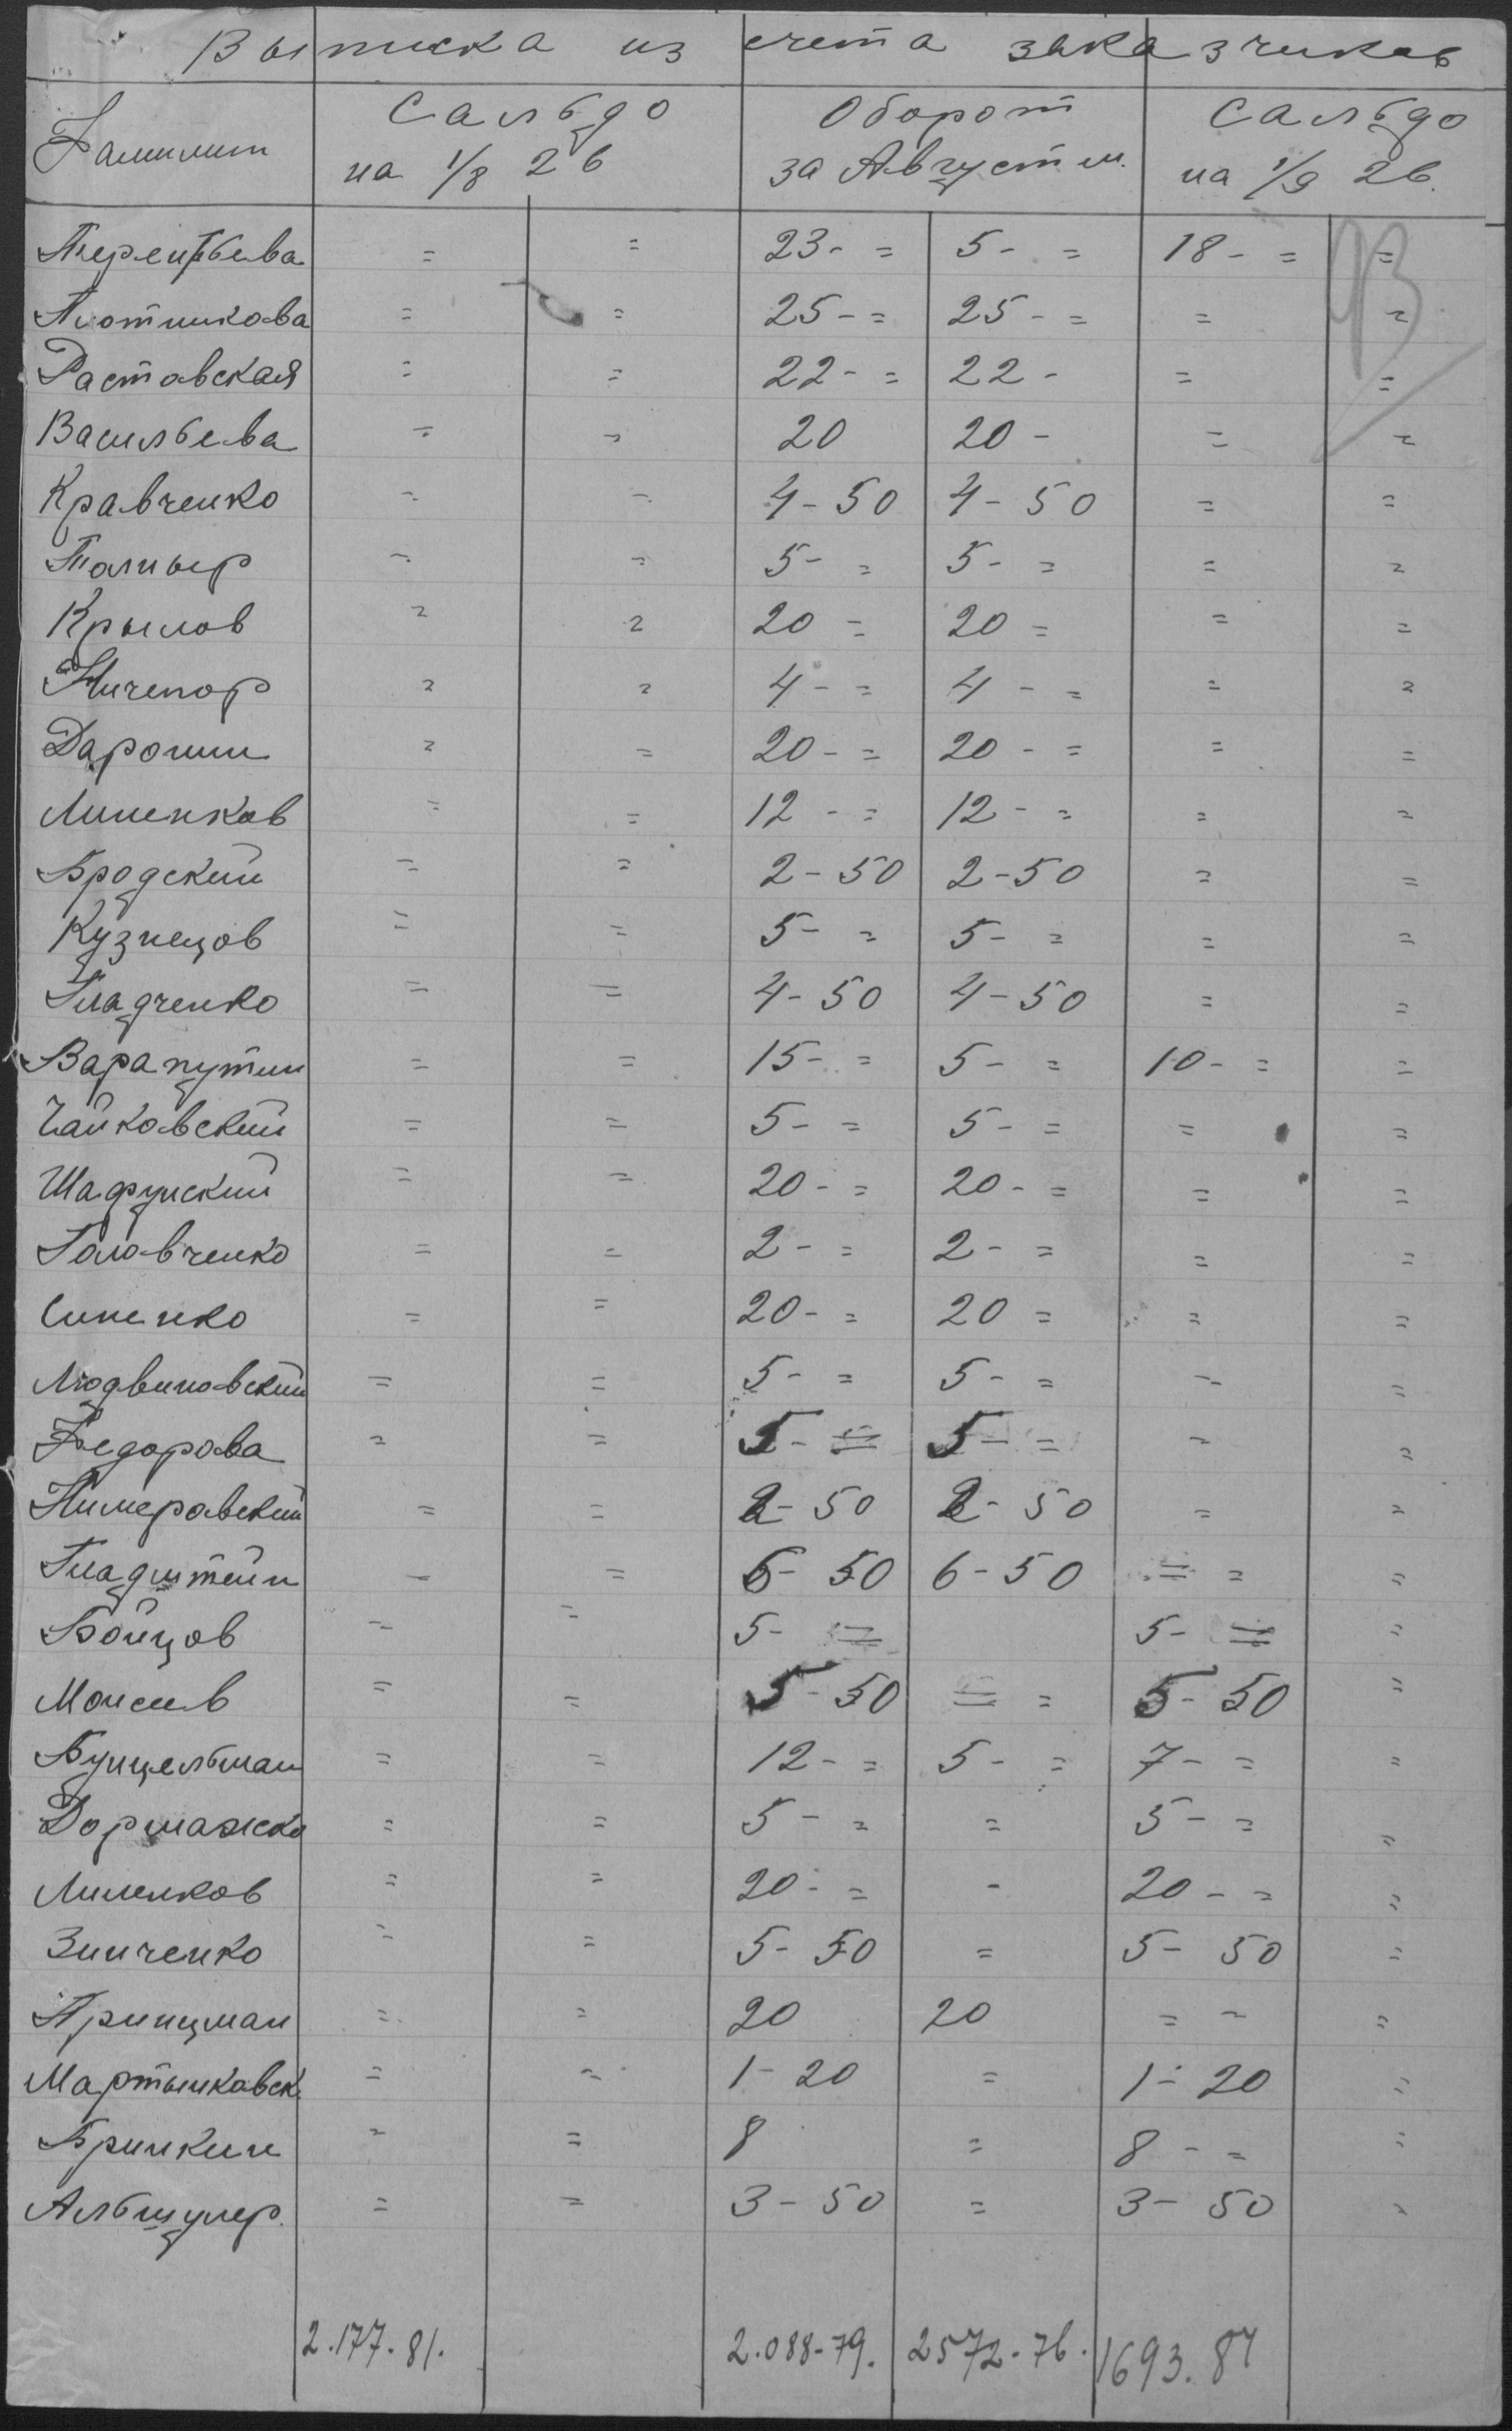 Выписка из счета заказчиков
Фамилии
Сальдо на 1/8 26
Оборот за Август м.
Сальдо на 1/9 26.
93
Терентьева = = 23- = 5- = 18- = =
Плотникова = = 25- = 25- = = =
Растовская = = 22- = 22- = =
Васильева = = 20 20- = =
Кравченко = = 4-50 4-50 = =
Талныр = = 5- = 5- = = =
Крылов = = 20 = 20 = = =
Ничепор = = 4- = 4- = = =
Дарошин = = 20- = 20- = = =
Линенков = = 12- = 12- = = =
Бродский = = 2-50 2-50 = =
Кузнецов = = 5- = 5- = = =
Гладченко = = 4-50 4-50 = =
Варапутин = = 15- = 5- = 10- = =
Чайковский = = 5- = 5- = = =
Шафунский = = 20- = 20- = = =
Головченко = = 2- = 2- = = =
Синенко = = 20- = 20 = = =
Людвиновский = = 5- = 5- = = =
Федорова = = 5- = 5- = - =
Нимеровский = = 2-50 2-50 = =
Гладштейн = = 6-50 6-50 = = =
Бойцов = = 5- = 5- = =
Моисеев = = 5-50 = = 5-50 =
Бунцельман = = 12- = 5- = 7- = =
Доршажко = = 5- = = 5- = =
Линенков = = 20- = - 20- = =
Зинченко = = 5-50 = 5-50 =
Принцман = = 20 20 = - =
Мартынковск. = = 1-20 = 1-20 =
Бринкин = = 8 = 8- = =
Альтшулер. = = 3-50 = 3-50 =
2.177.81. 2.088-79. 2572-76. 1693.84